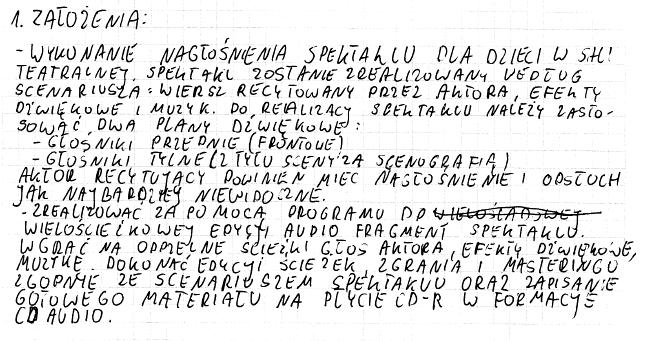 1. ZAŁOŻENIA:
- WYKONANIE NAGŁOŚNIENIA SPEKTAKLU DLA DZIECI W SALI
TEATRALNEJ. SPEKTAKL ZOSTANIE ZREALIZOWANY WEDŁUG
SCENARIUSZA: WIERSZ RECYTOWANY PRZEZ AKTORA, EFEKTY
DŹWIĘKOWE I MUZYK. DO REALIZACJ SPEKTAKLU NALEŻY ZASTO-
SOWAĆ DWA PLANY DŹWIĘKOWE:
- GŁOŚNIKI PRZEDNIE (FRONTOWE)
- GŁOŚNIKI TYLNE (Z TYŁU SCENY ZA SCENOGRAFIĄ)
AKTOR RECYTUJĄCY POWINIEN MIEĆ NAGŁOŚNIENIE I ODSŁUCH
JAK NAJBARDZIEJ NIEWIDOCZNE.
- ZREALIZOWAĆ ZA POMOCĄ PROGRAMU DO
WIELOŚCIEŻKOWEJ EDYCJI AUDIO FRAGMENT SPEKTAKLU.
WGRAĆ NA ODDZIELNE ŚCIEŻKI GŁOS AKTORA, EFEKTY DŹWIĘKOWE,
MUZYKĘ. DOKONAĆ EDYCJI ŚCIEŻEK, ZGRANIA I MASTERINGU
ZGODNIE ZE SCENARIUSZEM SPEKTAKLU ORAZ ZAPISANIE
GOTOWEGO MATERIAŁU NA PŁYCIE CD-R W FORMACIE
CD AUDIO.